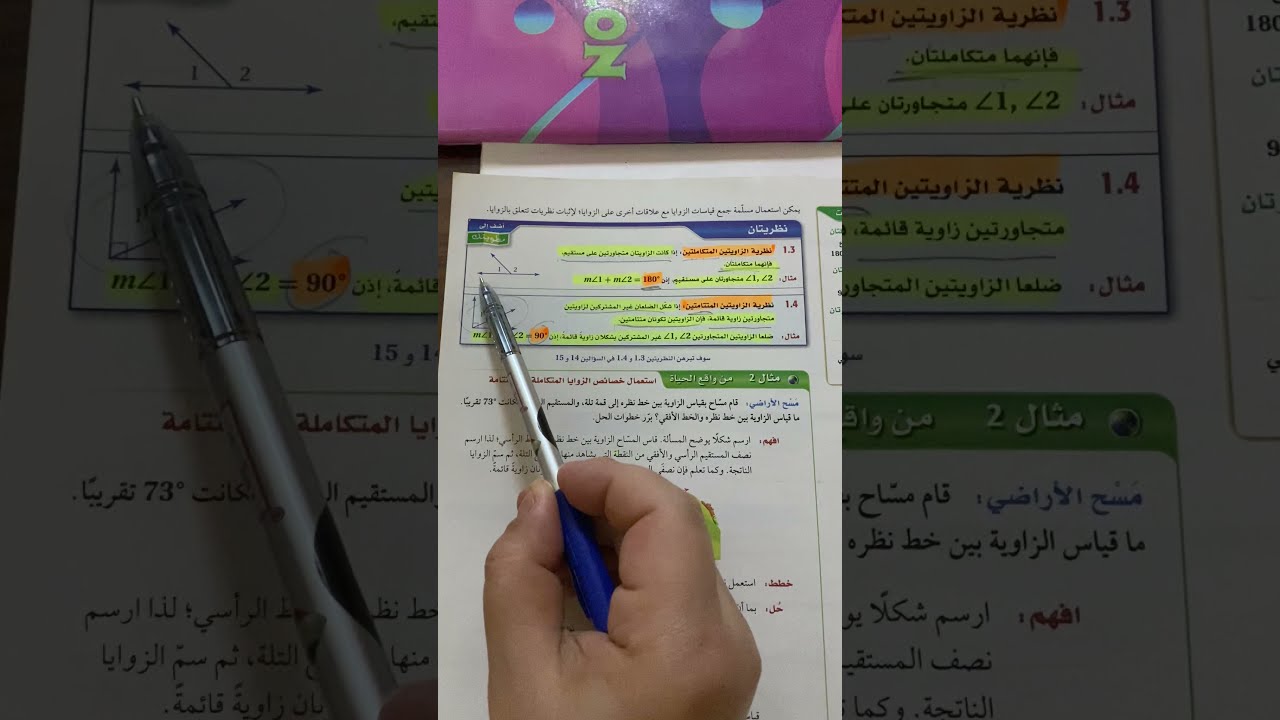 ON
يمكن استعمال مسلّمة جمع قياسات الزوايا مع علاقات أخرى على الزوايا؛ لإثبات نظريات تتعلق بالزوايا.
نظريتان
أضف إلى
مطويتك
1.3 نظرية الزاويتين المتكاملتين: إذا كانت الزاويتان متجاورتين على مستقيم،
فإنهما متكاملتان.
مثال: ∠1, ∠2 متجاورتان على مستقيم، إذن m∠1 + m∠2 = 180°
1 2
1.4 نظرية الزاويتين المتتامتين: إذا شكّل الضلعان غير المشتركين لزاويتين
متجاورتين زاوية قائمة، فإن الزاويتين تكونان متتامتين.
مثال: ضلعا الزاويتين المتجاورتين ∠1, ∠2 غير المشتركين يشكلان زاوية قائمة، إذن m∠1 ∠2 = 90°
سوف تبرهن النظريتين 1.3 و 1.4 في السؤالين 14 و 15
مثال 2 من واقع الحياة استعمال خصائص الزوايا المتكاملة
مَسْح الأراضي: قام مسّاح بقياس الزاوية بين خط نظره إلى قمة تلة، والمستقيم كانت 73° تقريبًا.
ما قياس الزاوية بين خط نظره والخط الأفقي؟ برّر خطوات الحل.
افهم: ارسم شكلًا يوضح المسألة. قاس المسّاح الزاوية بين خط الرأسي؛ لذا ارسم
نصف المستقيم الرأسي والأفقي من النقطة التي يشاهد منها التلة، ثم سمّ الزوايا
الناتجة. وكما تعلم فإن نصفَي زاويةً قائمةً.
خطط: استعمل
حُل: بما